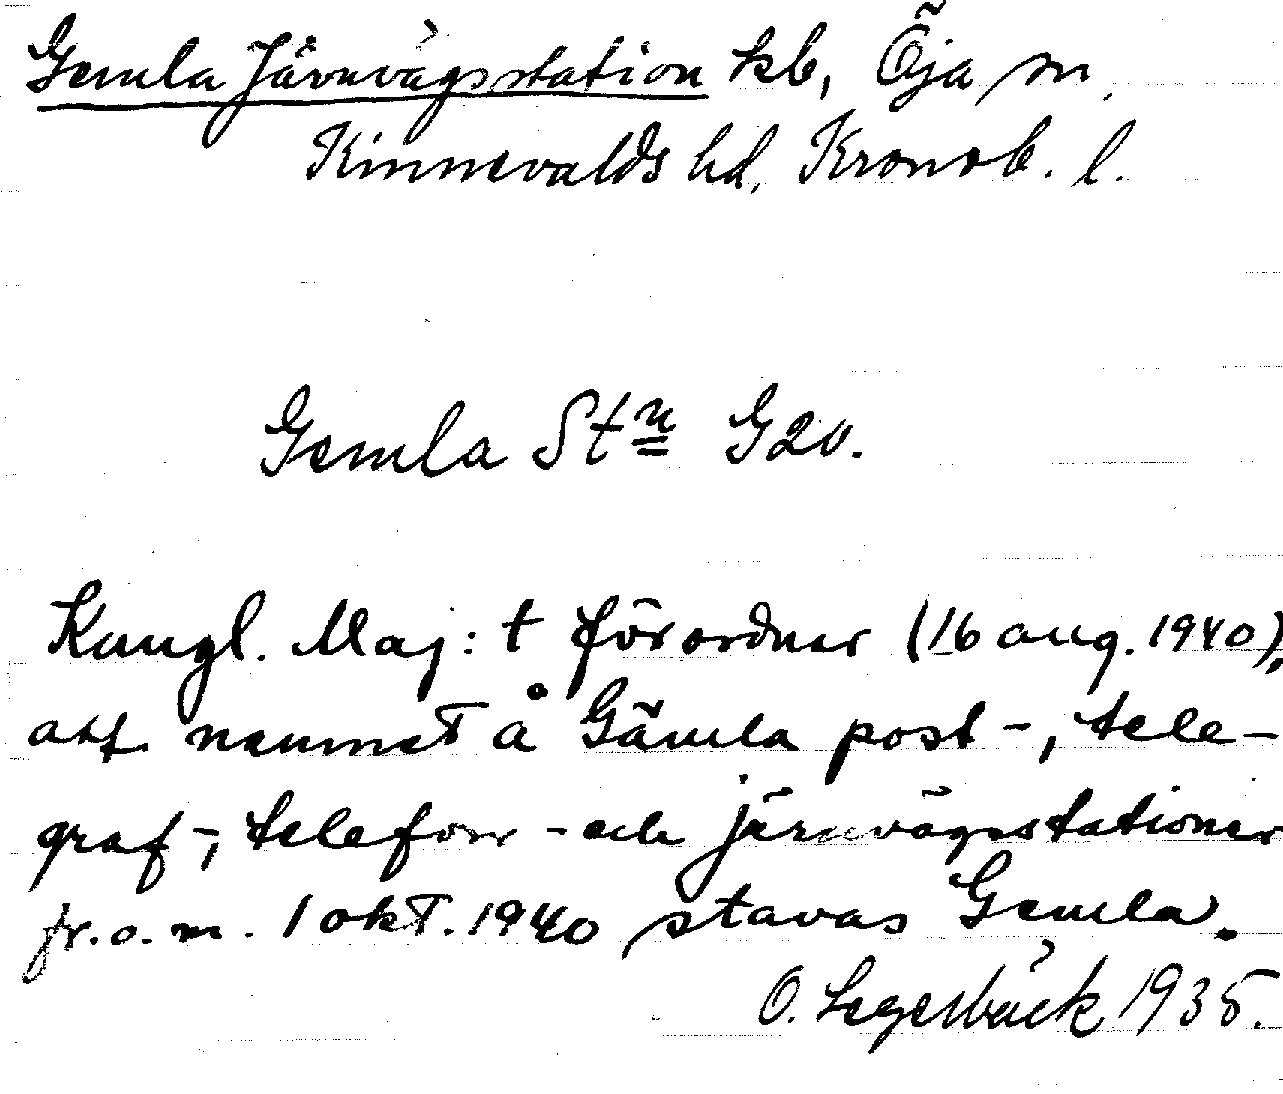 Gemla Järnvägsstation kb, Öja sn,
Kinnevalds hd, Kronob. l.
Gemla Stn G20.
Kungl. Maj:t förordner (16 aug. 1940),
att namnet å Gämla post-, tele-
graf-, telefon- och järnvägsstationer
fr.o.m. 1 okt. 1940 stavas Gemla.
O. Segerbäck 1935.